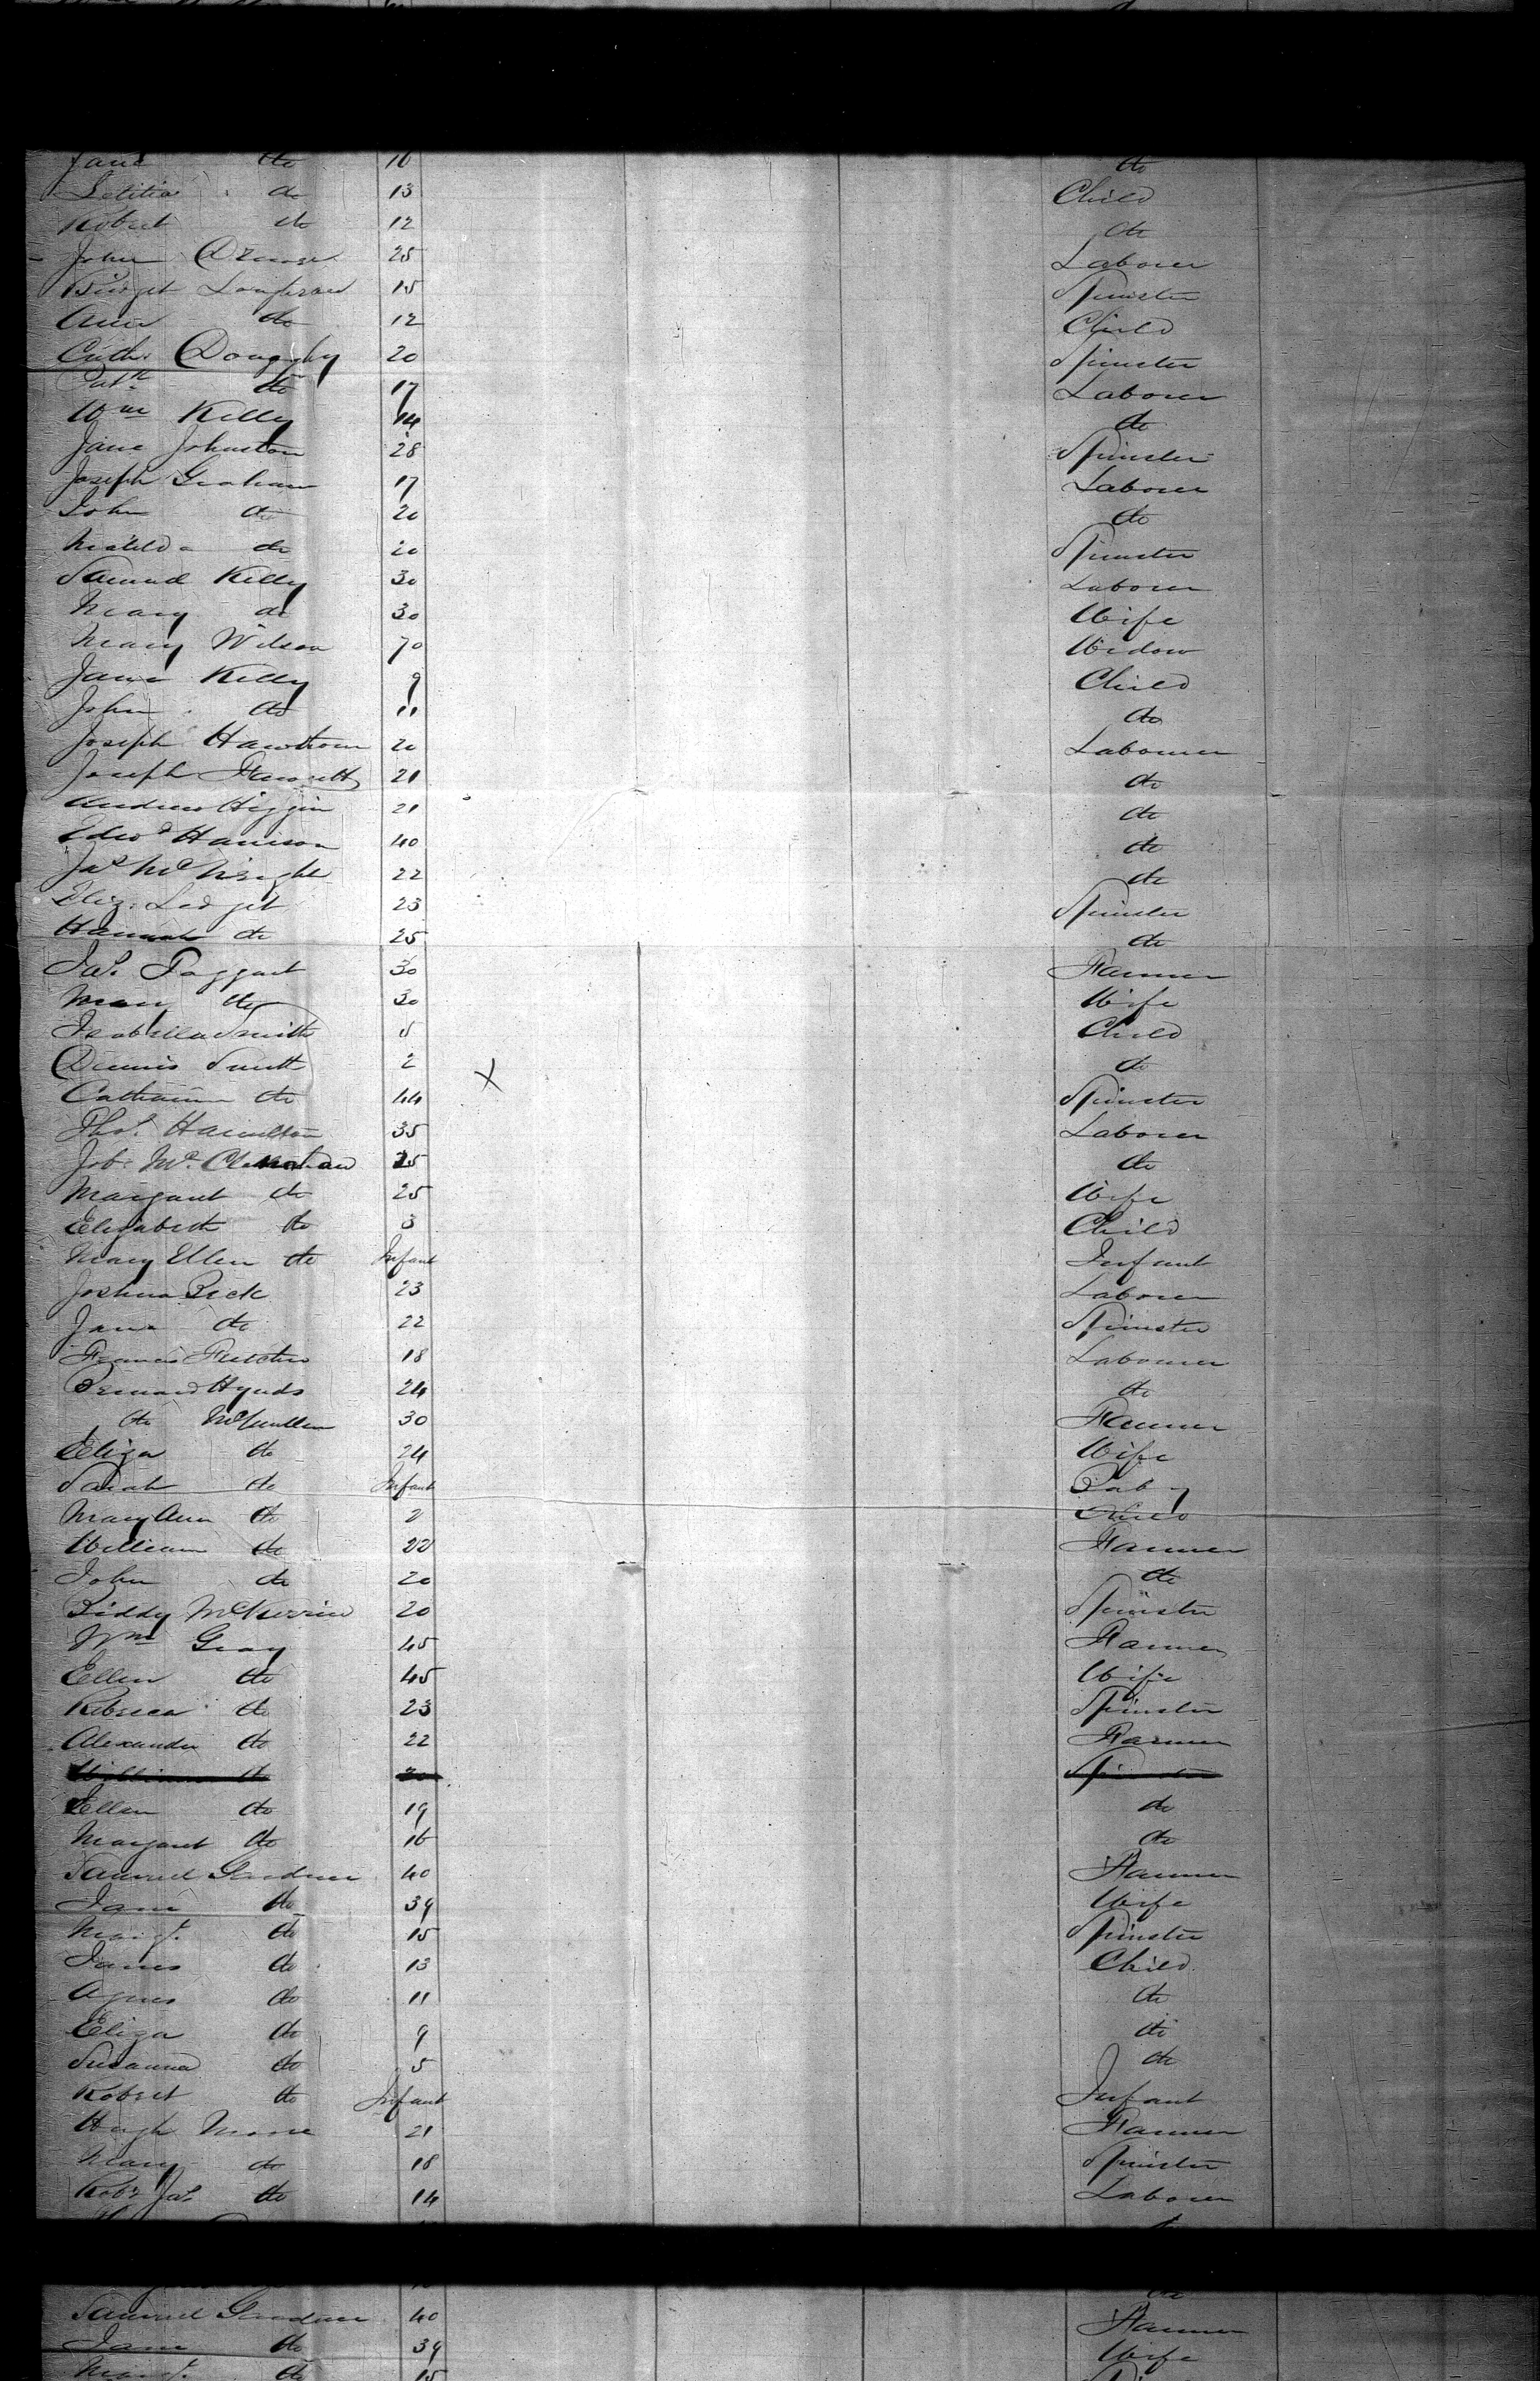 Jane do 16 do
Letitia do 13 Child
Robert do 12 do
John 25 Laborer
Bridget 15 Spinster
Ann do 12 Child
Cath. 20 Spinster
Patk do 17 Laborer
Wm Kelly 14 do
Jane Johnston 28 Spinster
Joseph Graham 17 Laborer
John do 20 do
Matilda do 20 Spinster
Samuel Kelly 30 Laborer
Mary do 30 Wife
Mary Wilson 70 Widow
Jane Kelly 9 Child
John do 11 do
Joseph Hawthorn 20 Labourer
Joseph 21 do
Andrew Higgin 21 do
Edwd Harrison 40 do
Jas 22 do
Eliz. Ledget 23 Spinster
Hannah do 25 do
Jas. Taggart 30 Farmer
Mary do 30 Wife
Isabella Smith 5 Child
Dennis Smith 2 do
Catharine do 44 Spinster
Thos. Hamilton 35 Laborer
Job. McClenahan 25 do
Margaret do 25 Wife
Elizabeth do 3 Child
Mary Ellen do Infant Infant
Joshua 23 Laborer
Jane do 22 Spinster
Francis 18 Labourer
Bernard Hynds 24 do
do 30 Farmer
Eliza do 24 Wife
Sarah do Infant Baby
Mary Ann do 2 Child
William do 22 Farmer
John do 20 do
Biddy 20 Spinster
Wm Gray 45 Farmer
Ellen do 45 Wife
Rebecca do 23 Spinster
Alexander do 22 Farmer
William do 20 Spinster
Ellen do 19 do
Margaret do 16 do
Samuel Gardner 40 Farmer
Jane do 39 Wife
Margt. do 15 Spinster
James do 13 Child
Agnes do 11 do
Eliza do 9 do
Susanna do 5 do
Robert do Infant Infant
Hugh 21 Farmer
Mary do 18 Spinster
Robt Jas. do 14 Laborer
Samuel Gardner 40 Farmer
Jane do 39 Wife
Margt. do 15